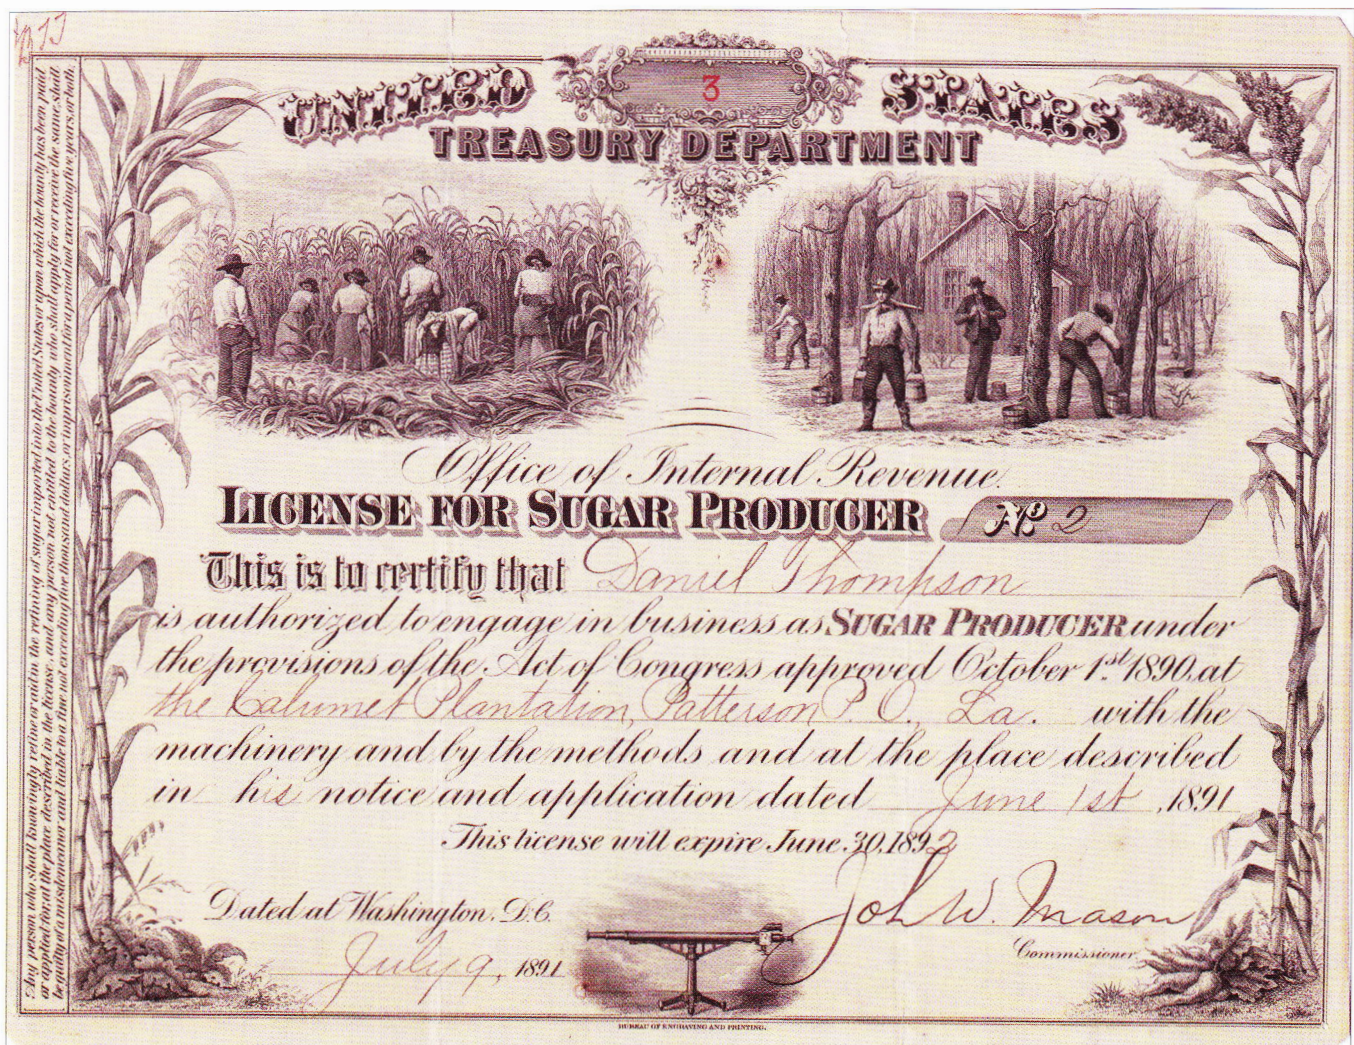 UNITED STATES
3
TREASURY DEPARTMENT
Office of Internal Revenue.
LICENSE FOR SUGAR PRODUCER No 2
This is to certify that Daniel Thompson
is authorized to engage in business as SUGAR PRODUCER under
the provisions of the Act of Congress approved October 1st 1890, at
the Calumet Plantation, Patterson P. O., La. with the
machinery and by the methods and at the place described
in his notice and application dated June 1st, 1891
This license will expire June 30, 1892
Dated at Washington, D.C.
July 9, 1891
John W. Mason
Commissioner.
BUREAU OF ENGRAVING AND PRINTING.
Any person who shall knowingly refine or aid in the refining of sugar imported into the United States or upon which the bounty has been paid
or applied for, at the place described in the license, and any person not entitled to the bounty who shall apply for or receive the same, shall
be guilty of a misdemeanor and liable to a fine not exceeding five thousand dollars, or imprisonment for a period not exceeding five years, or both.